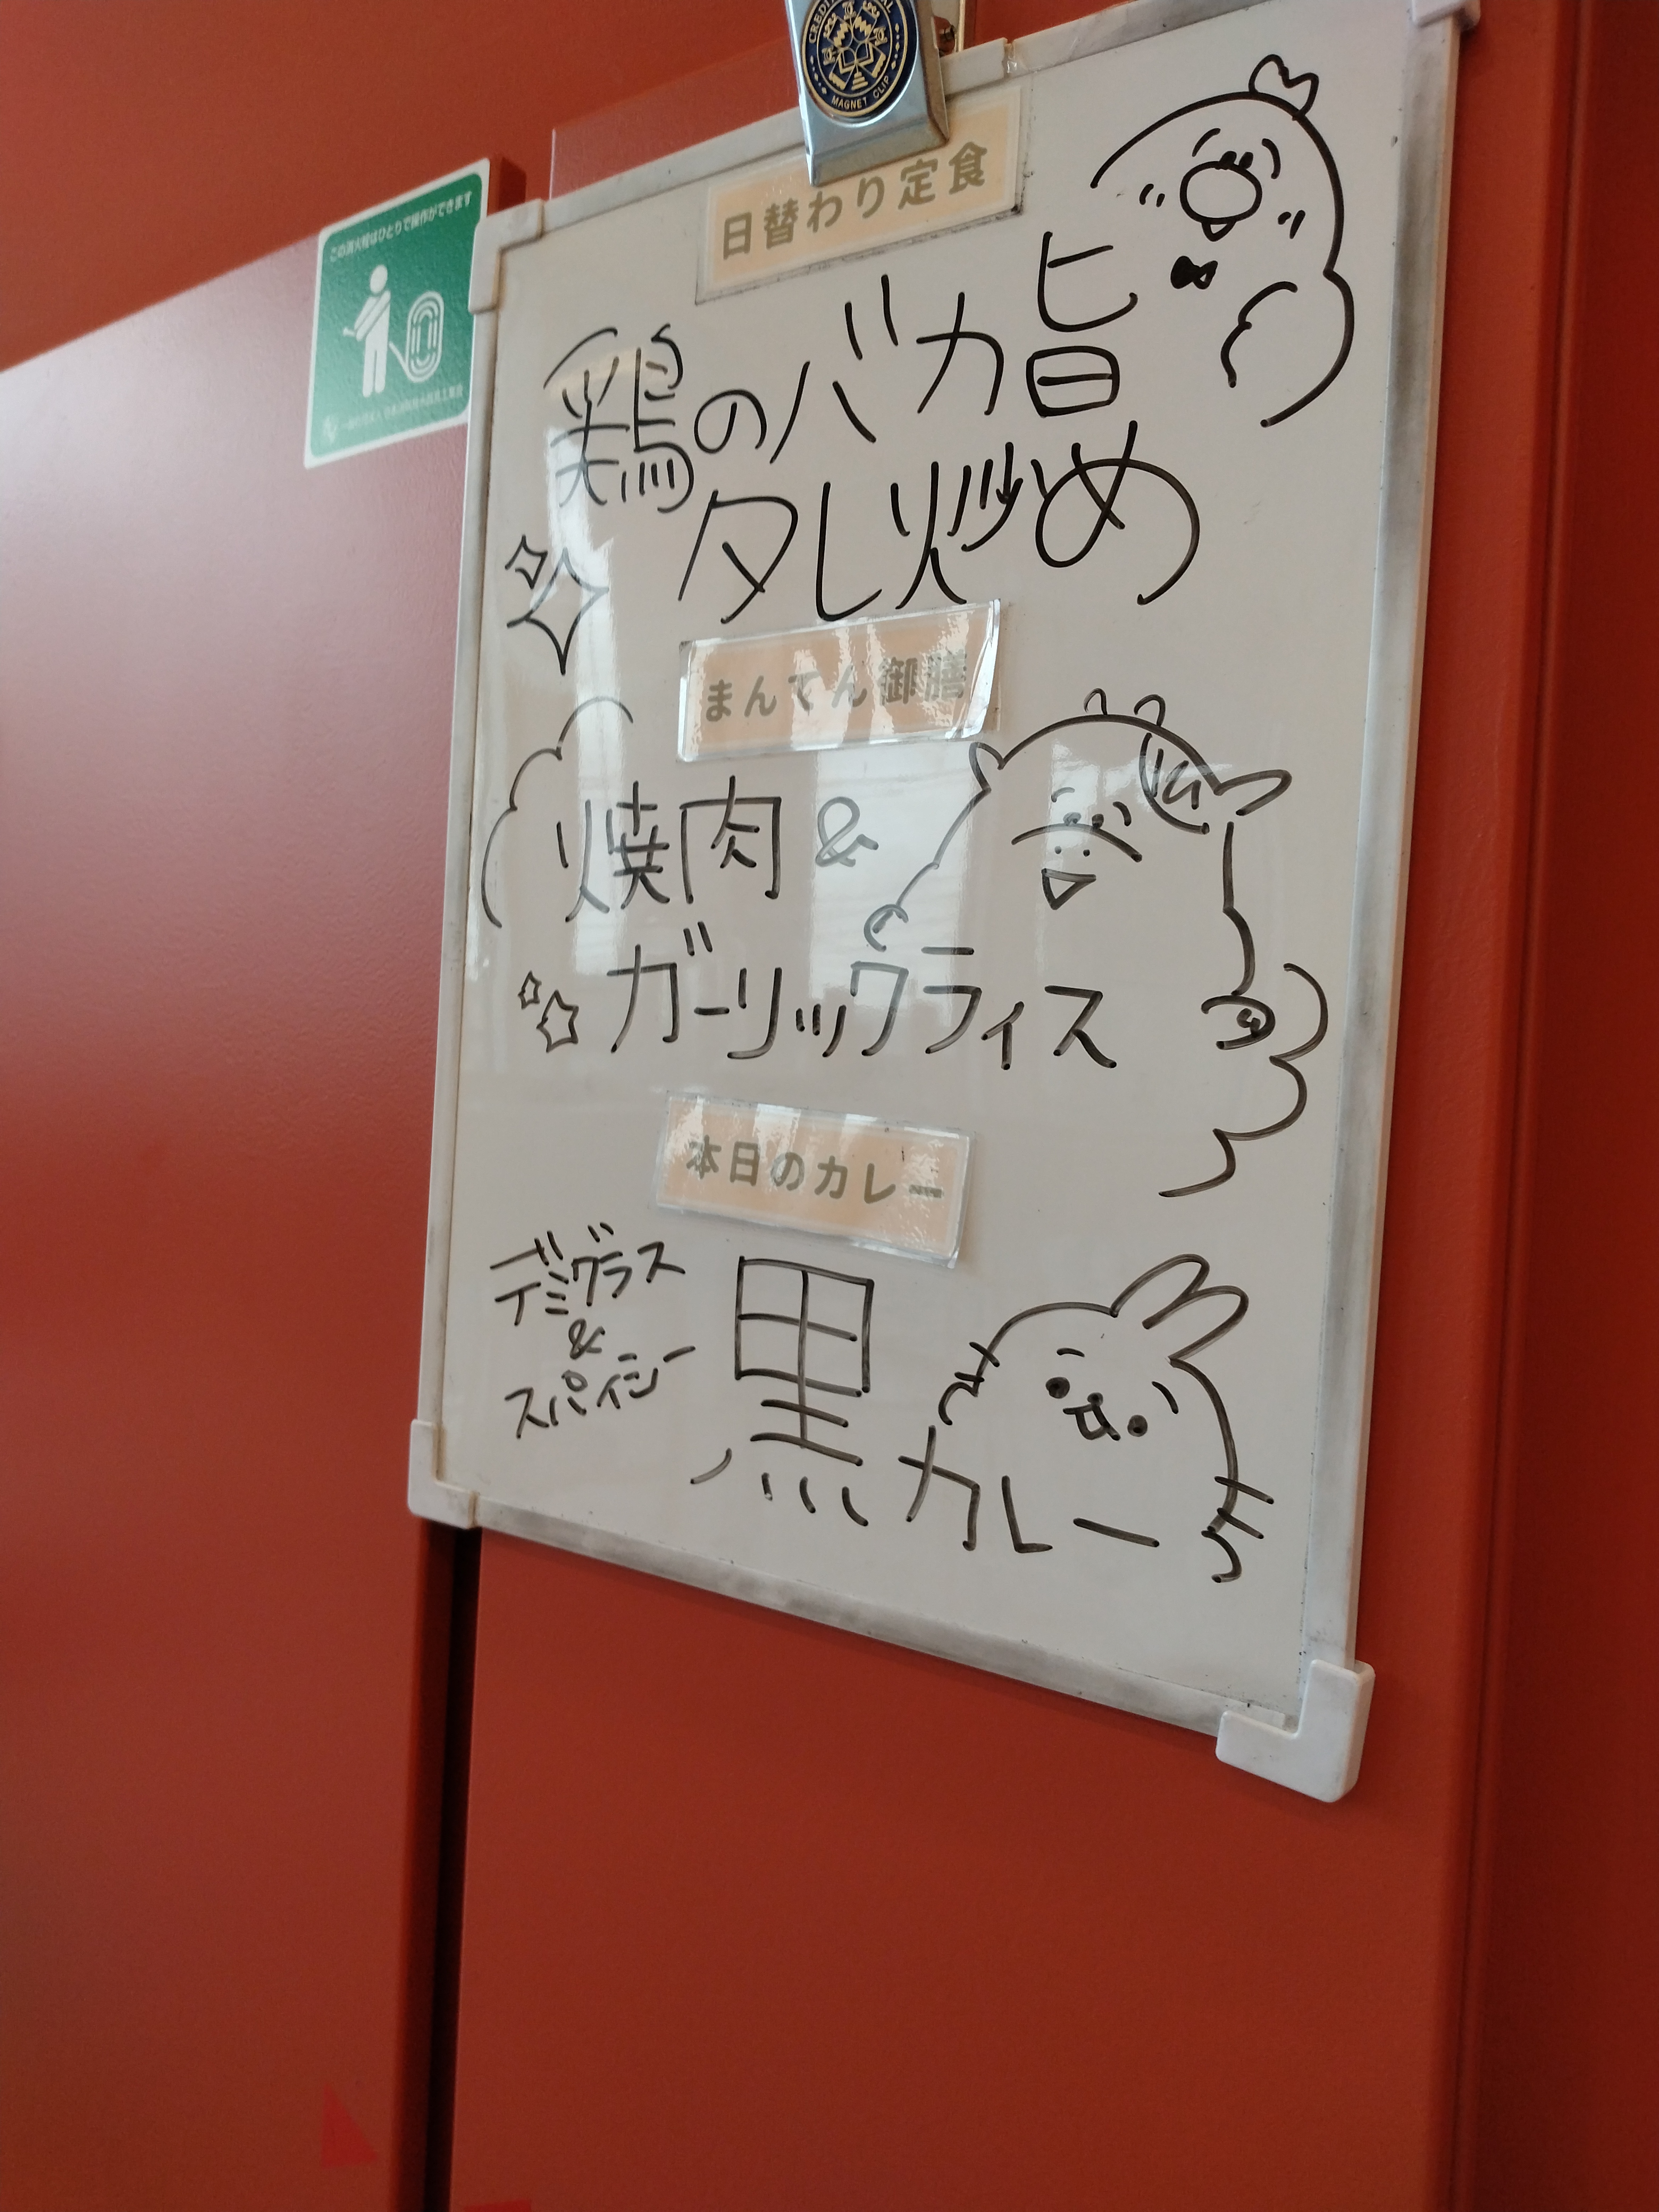 CREDIT
MAGNET CLIP
この消火栓はひとりで操作ができます
日替わり定食
鶏のバカ旨
タレ炒め
まんてん御膳
焼肉&
ガーリックライス
本日のカレー
デミグラス
&
スパイシー
黒カレー